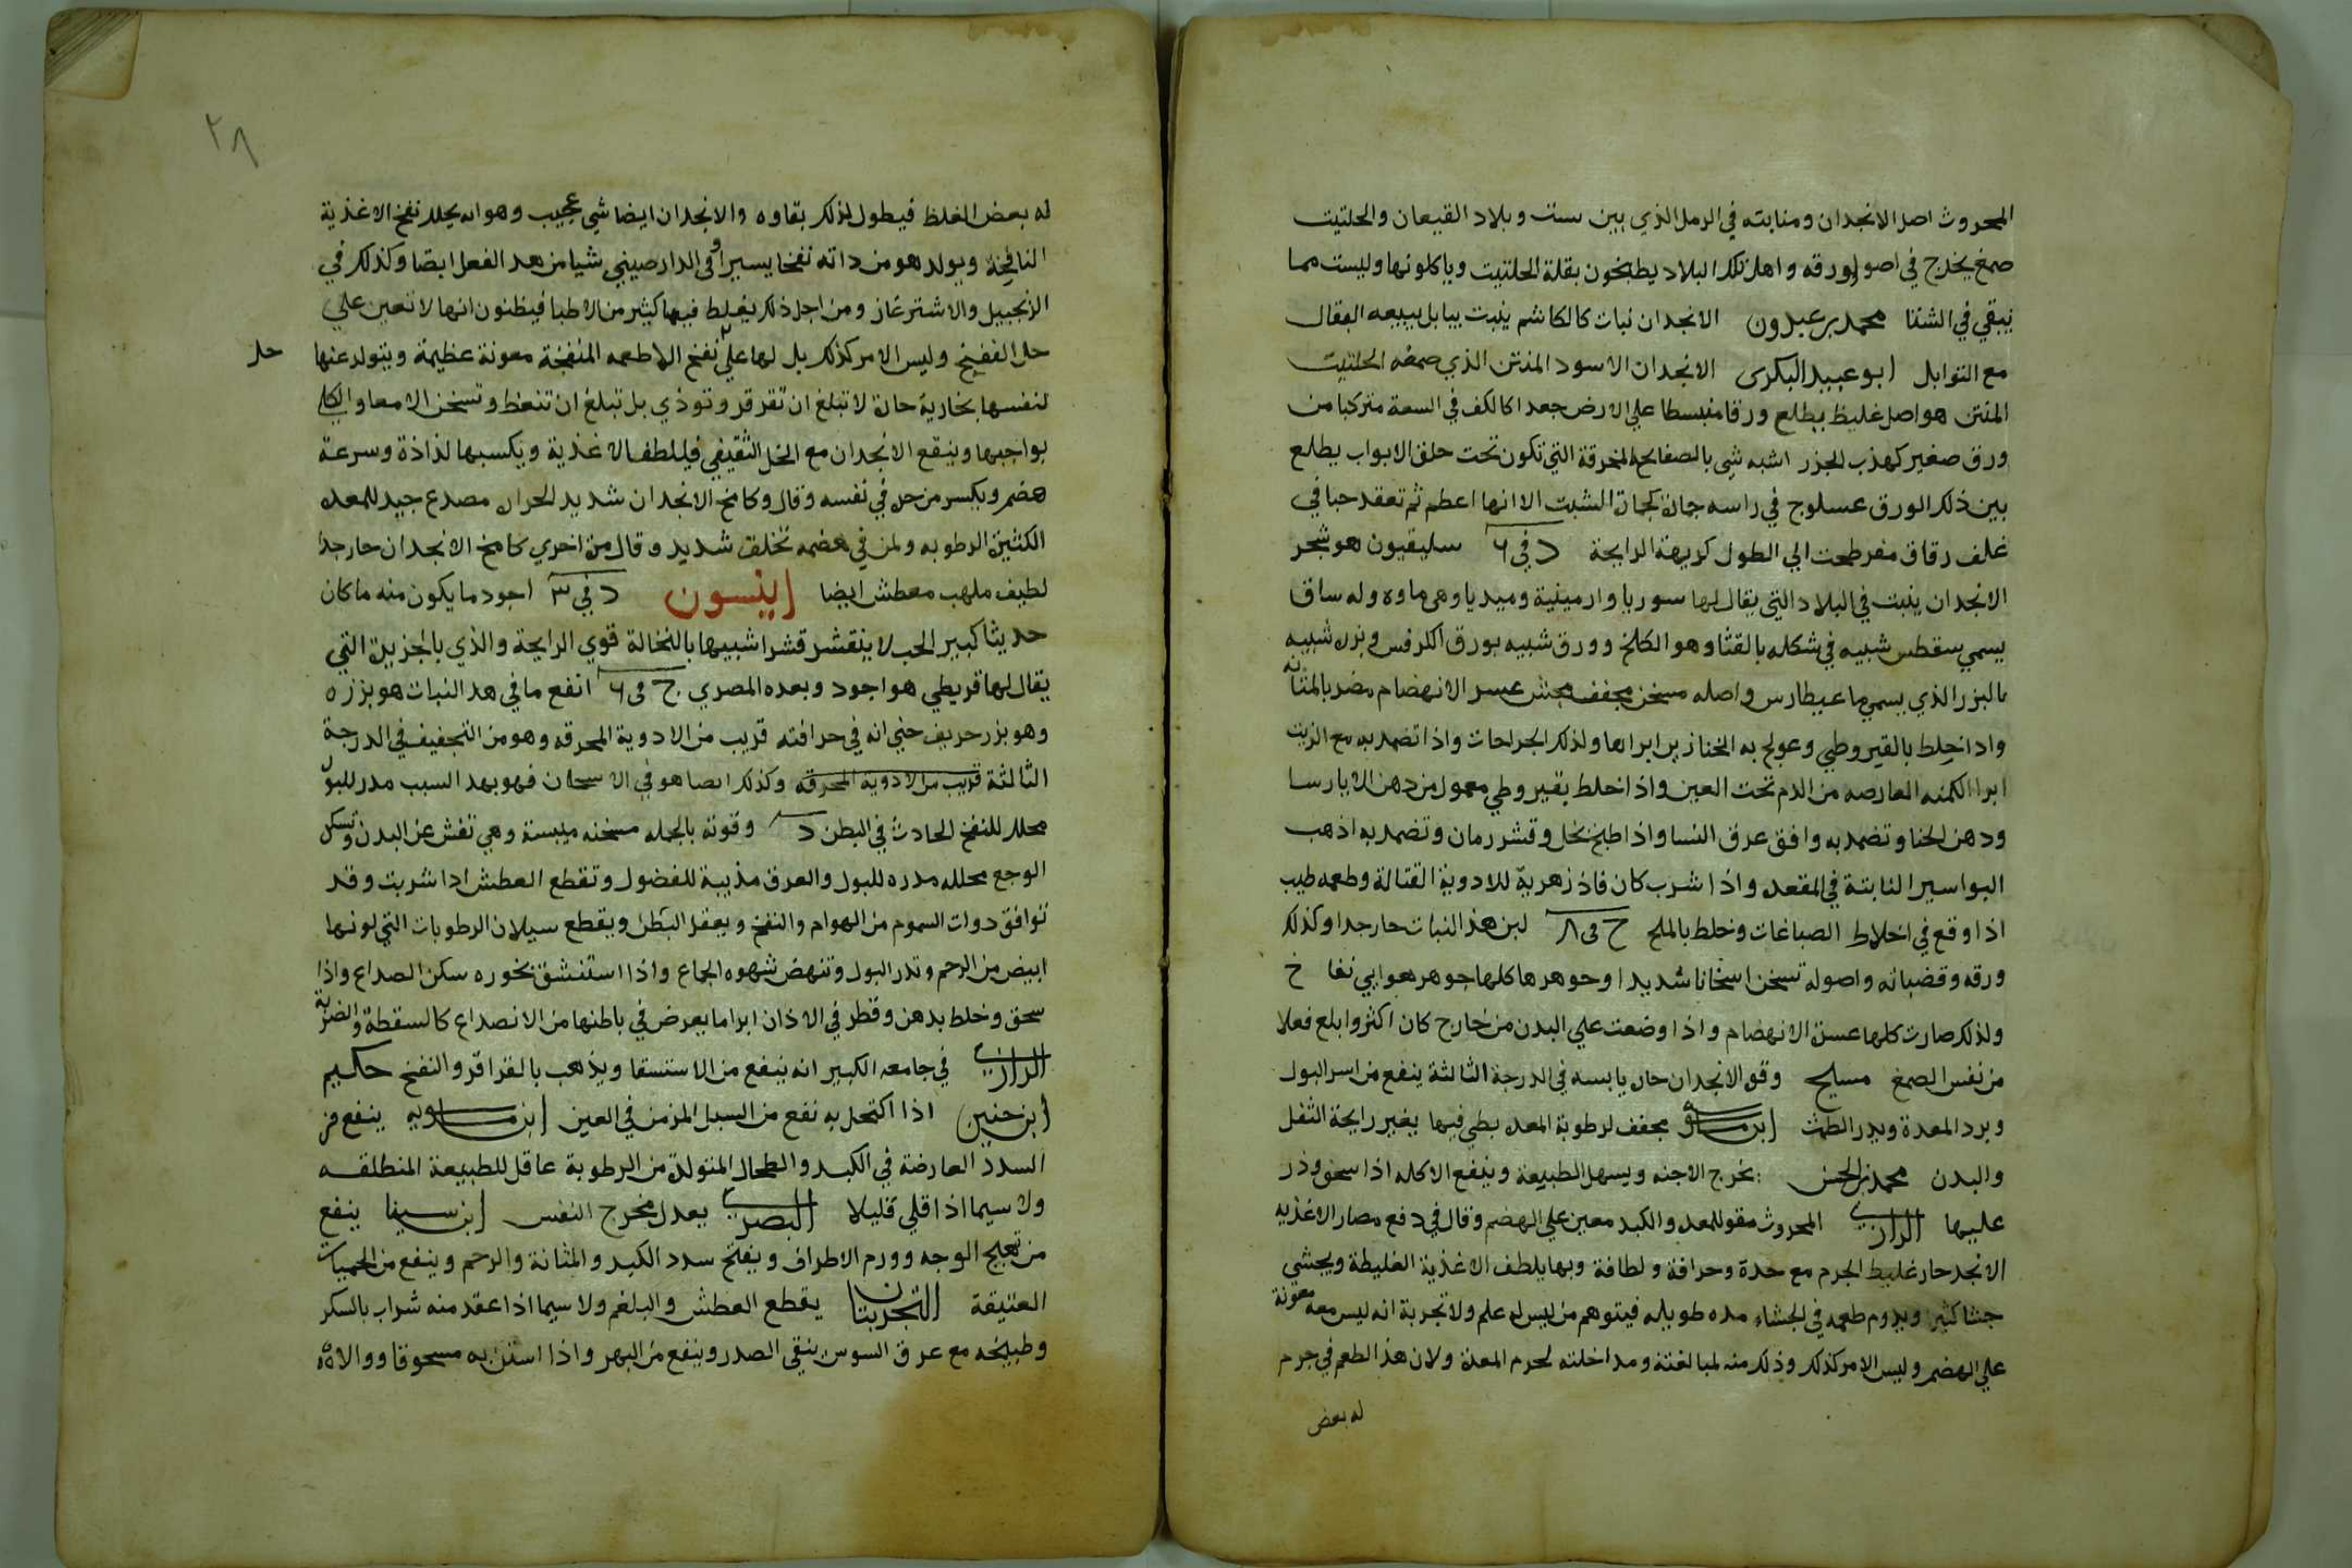 المحروث اصل الانجدان ومنابته في الرمل الذي بين ست وبلاد القيعان والحلتيت
صمغ يخرج في اصوله وورقه واهل تلك البلاد يطبخون بقلة الحلتيت وياكلونها وليست مما
يبقي في الشتا محمد بن عبدون الانجدان نبات كالكاشم ينبت ببابل يبيعه البقال
مع التوابل ابو عبيد البكرى الانجدان الاسود المنتن الذي صمغه الحلتيت
المنتن هو اصل غليظ يطلع ورقا منبسطا علي الارض جعدا كالكف في السعة متركبا من
ورق صغير كهدب الجزر اشبه شي بالصفايح المخرقة التي تكون تحت حلق الابواب يطلع
بين ذلك الورق عسلوج في راسه جمة كجمة الشبت الا انها اعظم ثم تعقد حبا في
غلف رقاق مفرطحت الي الطول كريهة الرايحة د في ٦ سليقيون هو شجر
الانجدان ينبت في البلاد التي يقال لها سوريا وارمينية وميديا وهي ماه وله ساق
يسمي سقطس شبيه في شكله بالقثا وهو الكلخ وورق شبيه بورق الكرفس وبزره شبيه
بالبزر الذي يسمي ماعيطارس واصله مسخن مجفف مجش عسر الانهضام مضر بالمثانه
واذا خلط بالقيروطي وعولج به الخنازير ابراها وكذلك الجراحات واذا تضمد به مع الزيت
ابرا الكمنه العارضه من الدم تحت العين واذا خلط بقيروطي معمول من دهن الايارسا
ودهن الحنا وتضمد به وافق عرق النسا واذا طبخ بخل وقشر رمان وتضمد به اذهب
البواسير النابتة في المقعده واذا شرب كان فاذزهرية للادوية القتالة وطعمه طيب
اذا وقع في اخلاط الصباغات وخلط بالملح ج في ٨ لبن هذا النبات حار جدا وكذلك
ورقه وقضبانه واصوله تسخن اسخانا شديدا وجوهرها كلها جوهر هوايي نفاخ
ولذلك صارت كلها عسرة الانهضام واذا وضعت علي البدن من خارج كان اكثر وابلغ فعلا
من نفس الصمغ مسيح وقوة الانجدان حارة يابسه في الدرجة الثالثة ينفع من اسر البول
وبرد المعدة ويدر الطمث ابن ماسويه مجفف لرطوبة المعده بطي فيها يغير رايحة الثفل
والبدن محمد بن الحسن يخرج الاجنه ويسهل الطبيعة وينفع الاكله اذا سحق وذر
عليها الرازي المحروث مقو للمعده والكبد معين علي الهضم وقال في دفع مضار الاغذيه
الانجد حار غليظ الجرم مع حدة وحرافة ولطافة وبها يلطف الاغذية الغليظة ويجشي
جشا كثيرا ويدوم طعمه في الجشاء مده طويله فيتوهم من ليس له علم ولا تجربة انه ليس معه معونة
علي الهضم وليس الامر كذلك وذلك منه لمبالغته ومداخلته لجرم المعدة ولان هذا الطعم في جرم
له بعض
٢٨
له بعض الغلظ فيطول لذلك بقاوه والانجدان ايضا شي عجيب وهو انه يحلل نفخ الاغذية
النافخة ويولد هو من داته نفخا يسيرا وفي الدارصيني شيا من هذا الفعل ايضا وكذلك في
الزنجبيل والاشترغاز ومن اجل ذلك يغلط فيها كثير من الاطبا فيظنون انها لا تعين علي
حل النفخ وليس الامر كذلك بل لها علي نفخ الاطعمه المنفخة معونة عظيمة ويتولد عنها
حل
لنفسها بخارية حارة لا تبلغ ان تقرقر وتوذي بل تبلغ ان تنعظ وتسخن الامعا والكلي
بواجبها وينقع الانجدان مع الخل الثقيفي فيلطف الاغذية ويكسبها لذاذة وسرعة
هضم ويكسر من حره في نفسه وقال وكامخ الانجدان شديد الحرارة مصدع جيد للمعده
الكثيرة الرطوبه ولمن في هضمه تخلف شديد وقال مرة اخري كامخ الانجدان حار جدا
لطيف ملهب معطش ايضا انيسون د في ٣ اجود ما يكون منه ما كان
حديثا كبير الحب لا ينقشر قشرا شبيها بالنخالة قوي الرايحة والذي بالجزيرة التي
يقال لها قريطي هو اجود وبعده المصري ج في ٦ انفع ما في هذا النبات هو بزره
وهو بزر حريف حتي انه في حرافته قريب من الادوية المحرقه وهو من التجفيف في الدرجة
الثالثة قريب من الادوية المحرقه وكذلك ايضا هو في الاسخان فهو بهذا السبب مدر للبول
محلل للنفخ الحادث في البطن د وقوته بالجمله مسخنه ميبسة وهي تفش عن البدن وتسكن
الوجع محلله مدره للبول والعرق مذيبة للفضول وتقطع العطش اذا شربت وقد
توافق دوات السموم من الهوام والنفخ ويعقل البطن ويقطع سيلان الرطوبات التي لونها
ابيض من الرحم وتدر البول وتنهض شهوه الجماع واذا استنشق بخوره سكن الصداع واذا
سحق وخلط بدهن وقطر في الاذان ابرا ما يعرض في باطنها من الانصداع كالسقطة والضربة
الرازي في جامعه الكبير انه ينفع من الاستسقا ويذهب بالقراقر والنفخ حكيم
ابن حنين اذا اكتحل به نفع من السبل المزمن في العين ابن ماسويه ينفع من
السدد العارضة في الكبد والطحال المتولدة من الرطوبة عاقل للطبيعة المنطلقه
ولا سيما اذا قلي قليلا البصري يعدل مخرج النفس ابن سينا ينفع
من تهبج الوجه وورم الاطراف ويفتح سدد الكبد والمثانة والرحم وينفع من الحميات
العتيقة التجربتان يقطع العطش والبلغم ولا سيما اذا عقد منه شراب بالسكر
وطبيخه مع عرق السوس ينقي الصدر وينفع من البهر واذا استن به مسحوقا ووالاه